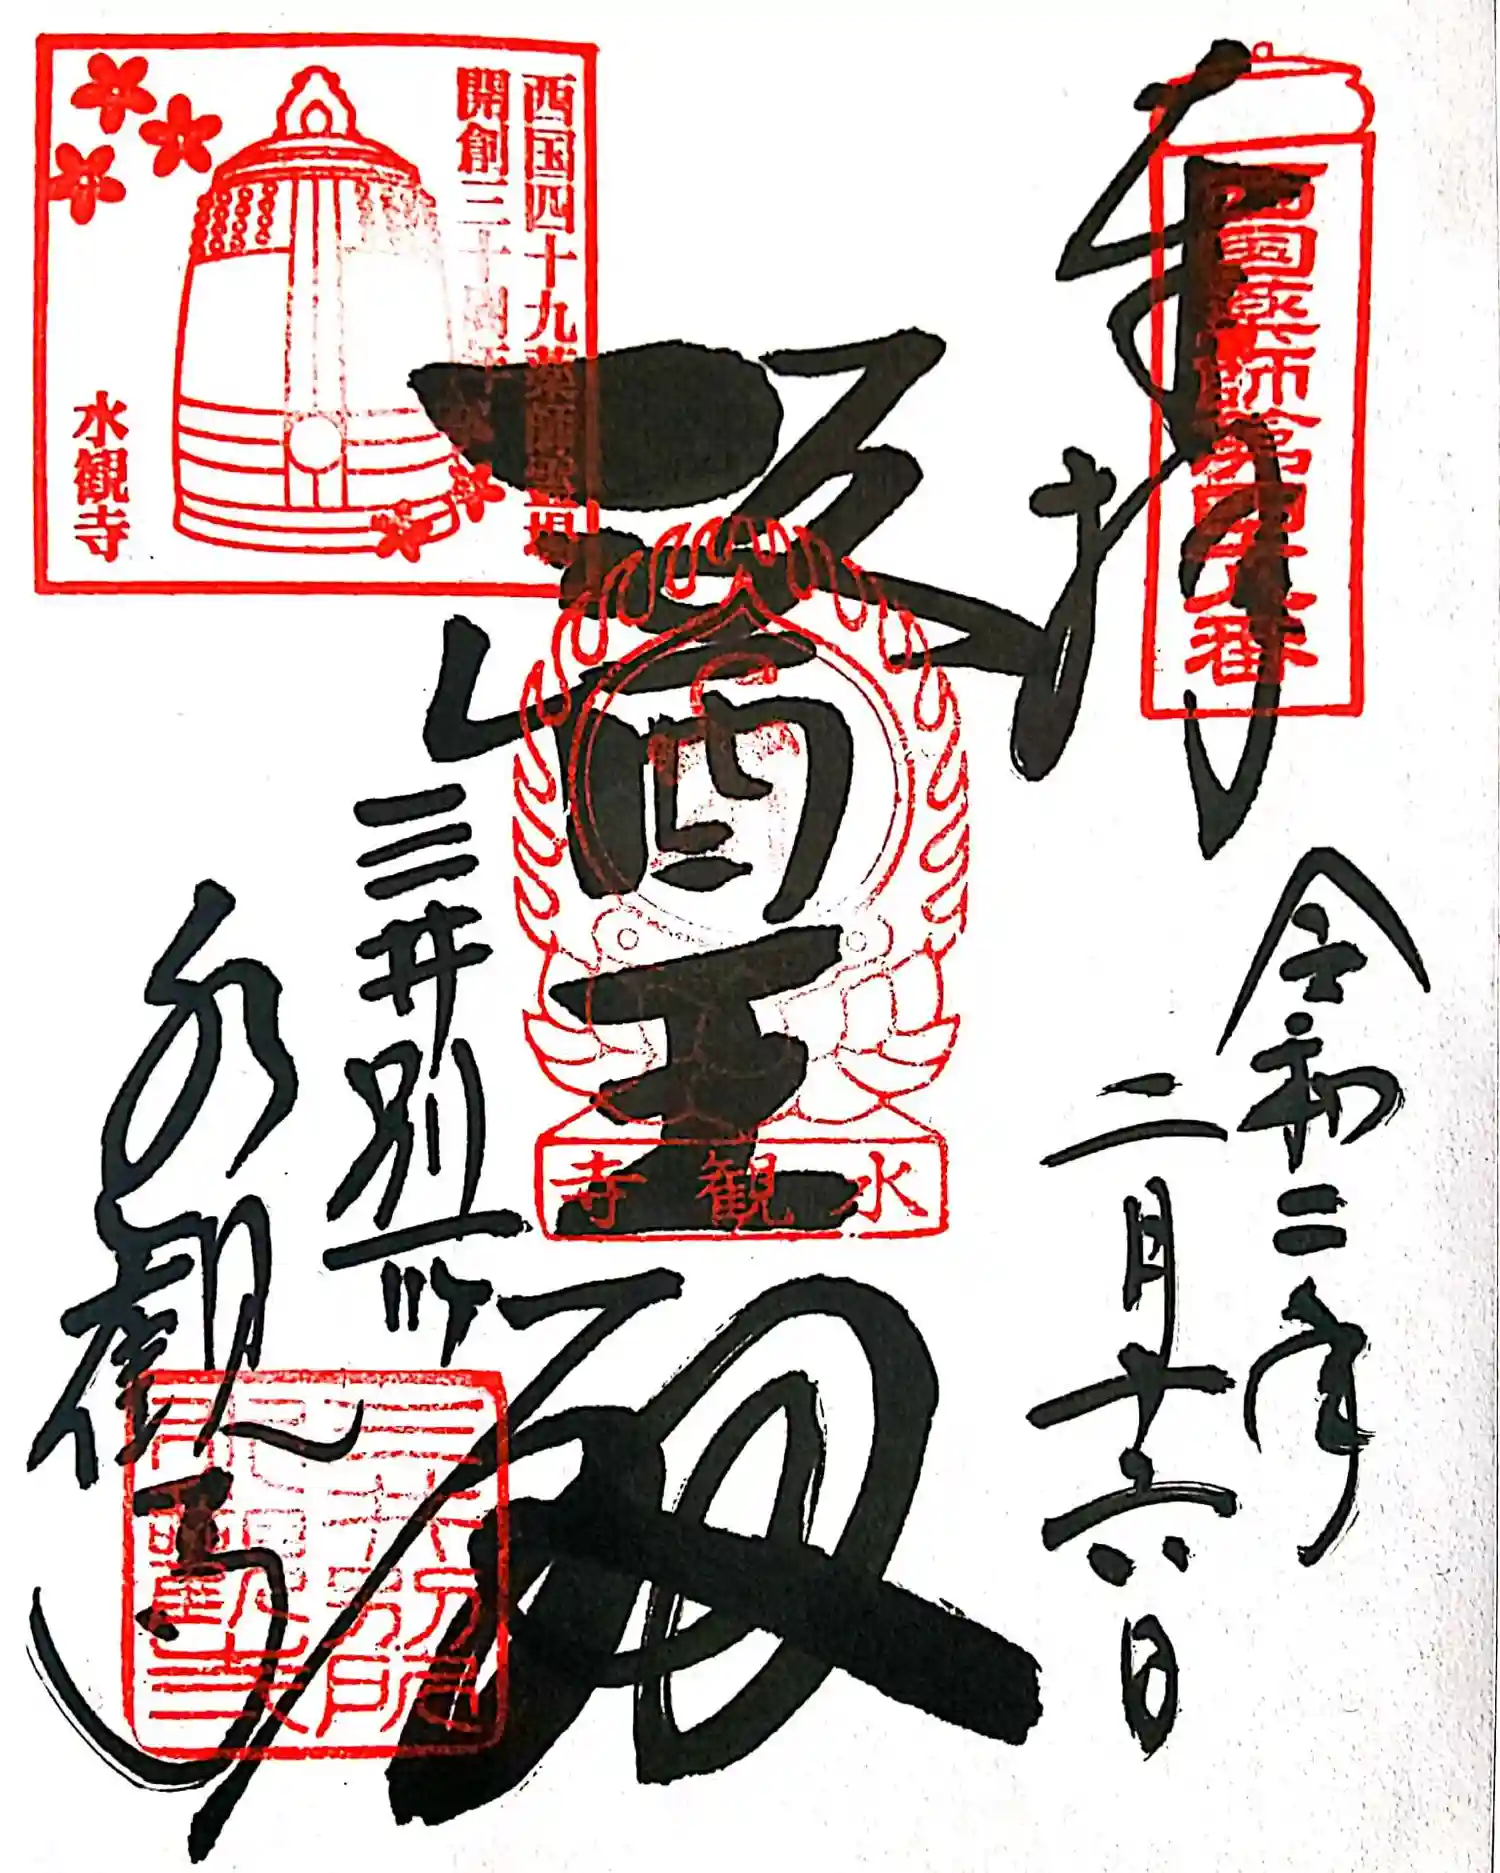 西国薬師第四十八番
奉拝
令和二年
二月十六日
醫王殿
水観寺
三井別所
水観寺
西国四十九薬師霊場
開創三十周年
水観寺